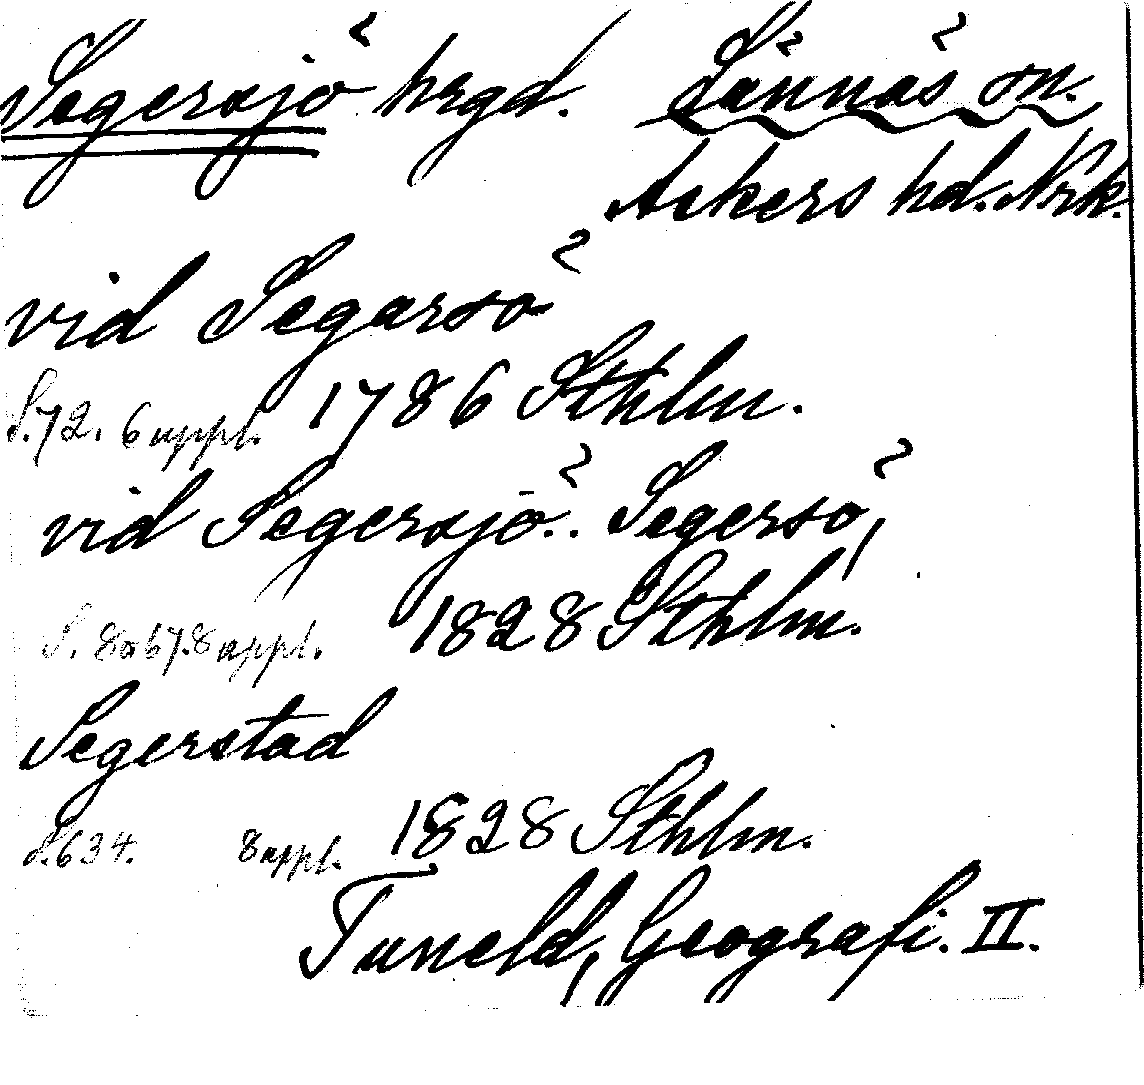 Segersjö hrgd. Lännäs sn.
Askers hd. Nrk.
vid Segarsö
S. 72. 6 uppl. 1786 Sthlm.
vid Segersjö.. Segersö,
S. 8 o 67. 8 uppl. 1828 Sthlm.
Segerstad
S. 634. 8 uppl. 1828 Sthlm.
Tuneld, Geografi. II.